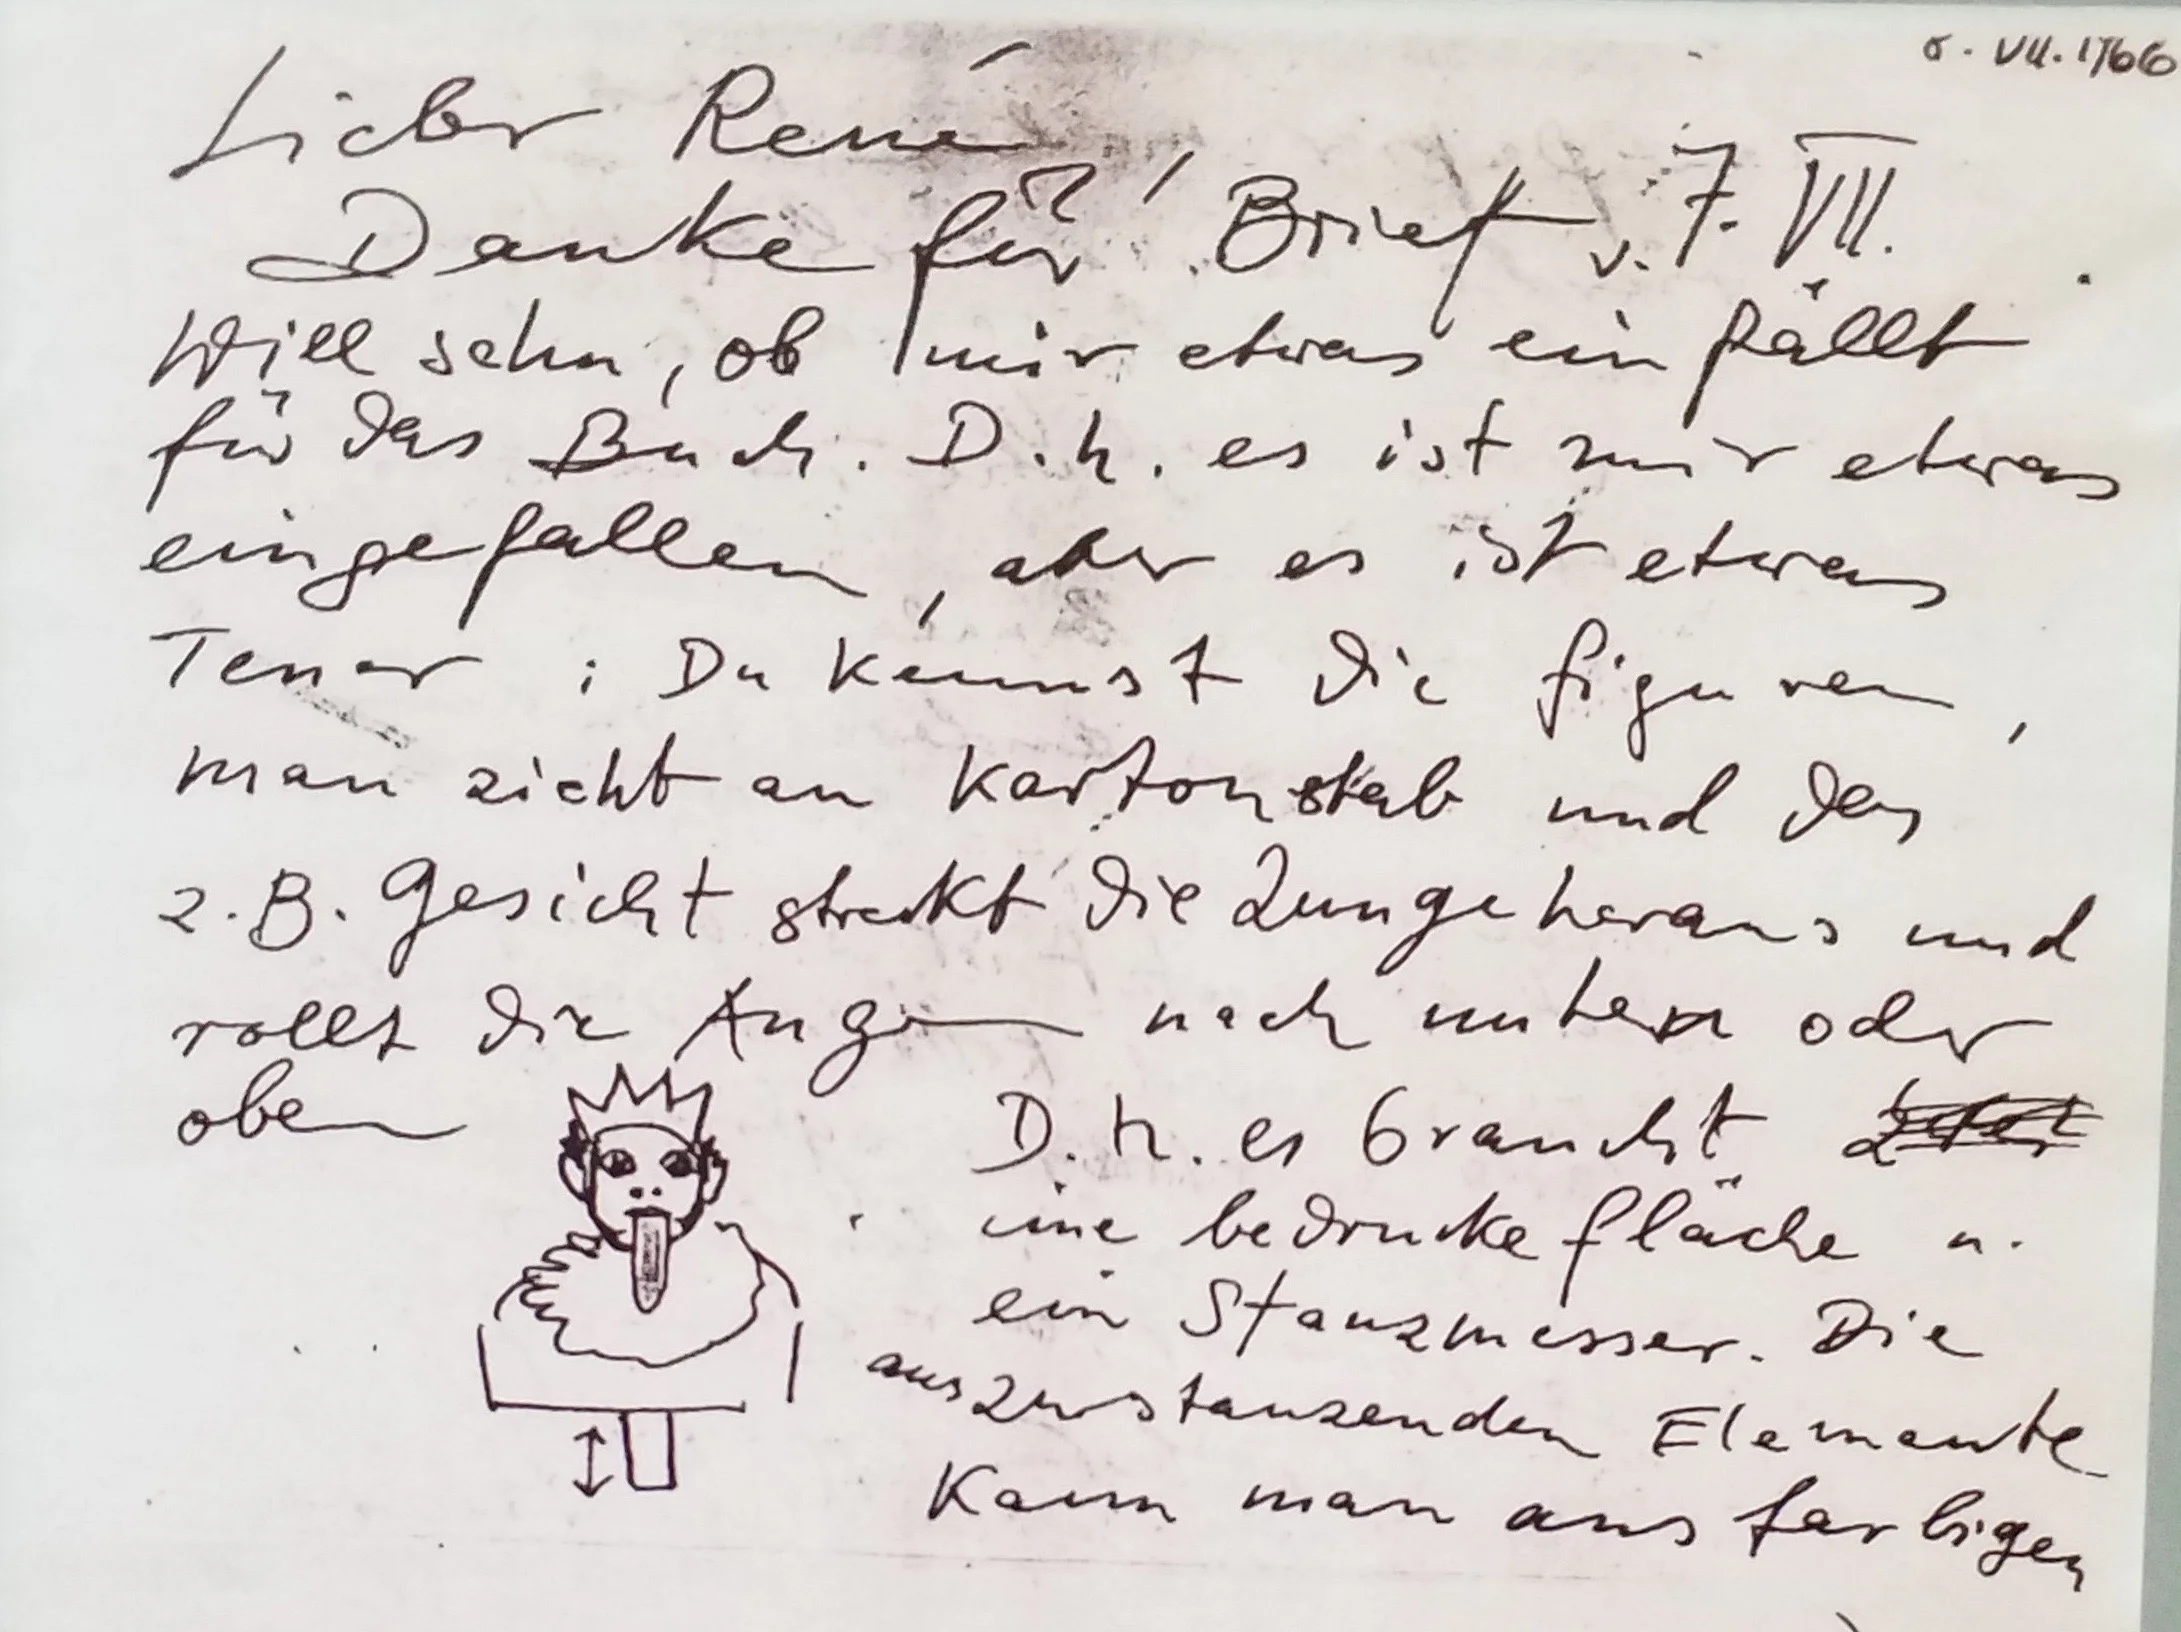 8. VII. 1966
Lieber René
Danke für Brief v. 7. VII.
Will sehn, ob mir etwas einfällt
für das Buch. D.h. es ist mir etwas
eingefallen, aber es ist etwas
Tener : Du kennst die figuren,
man zieht an Kartonstab und das
z.B. Gesicht streckt die Zunge heraus und
rollt die Augen nach unten oder
oben
D.h. es braucht
eine bedruckte fläche u.
ein Stanzmesser. Die
auszustanzenden Elemente
Kann man aus farbigen